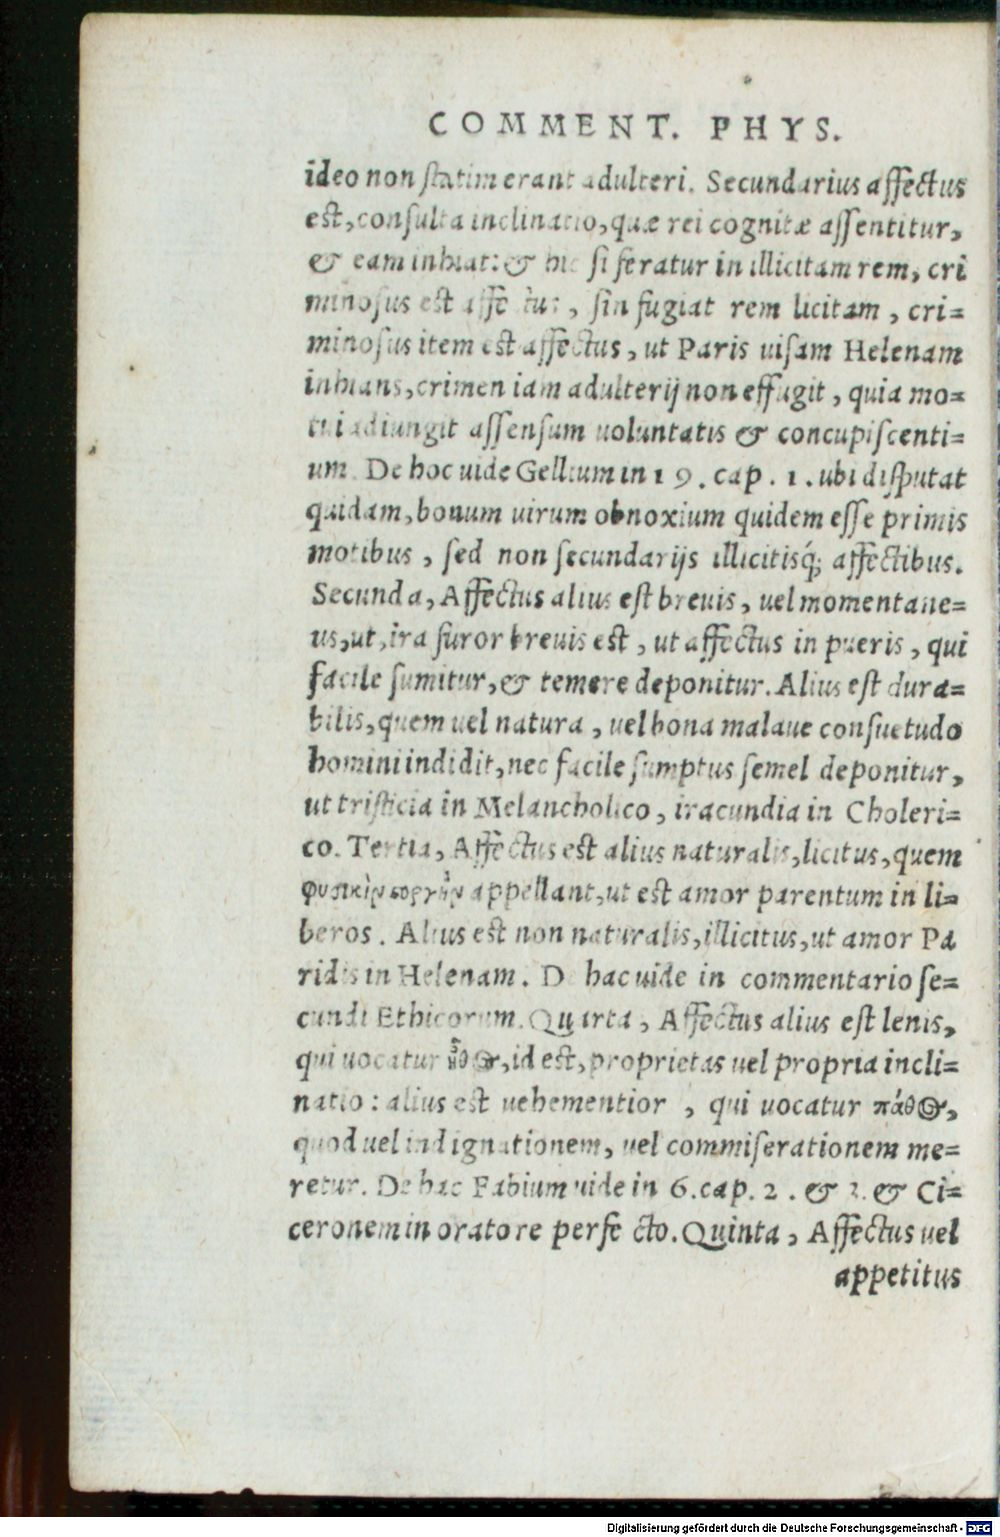 COMMENT. PHYS.
ideo non statim erant adulteri. Secundarius affectus
est, consulta inclinatio, quæ rei cognitæ assentitur,
& eam inhiat: & hic si feratur in illicitam rem, cri
minosus est affectus, sin fugiat rem licitam, cri=
minosus item est affectus, ut Paris uisam Helenam
inhians, crimen iam adulterij non effugit, quia mo=
tui adiungit assensum uoluntatis & concupiscenti=
um. De hoc uide Gellium in 19. cap. 1. ubi disputat
quidam, bonum uirum obnoxium quidem esse primis
motibus, sed non secundarijs illicitisq́; affectibus.
Secunda, Affectus alius est breuis, uel momentane=
us, ut, ira furor breuis est, ut affectus in pueris, qui
facile sumitur, & temere deponitur. Alius est dura=
bilis, quem uel natura, uel bona malaue consuetudo
homini indidit, nec facile sumptus semel deponitur,
ut tristicia in Melancholico, iracundia in Choleri=
co. Tertia, Affectus est alius naturalis, licitus, quem
φυσικὴν στοργὴν appellant, ut est amor parentum in li=
beros. Alius est non naturalis, illicitus, ut amor Pa
ridis in Helenam. De hac uide in commentario se=
cundi Ethicorum. Quarta, Affectus alius est lenis,
qui uocatur ἦθος, id est, proprietas uel propria incli=
natio: alius est uehementior, qui uocatur πάθος,
quod uel indignationem, uel commiserationem me=
retur. De hac Fabium uide in 6. cap. 2. & 3. & Ci=
ceronem in oratore perfecto. Quinta, Affectus uel
appetitus
Digitalisierung gefördert durch die Deutsche Forschungsgemeinschaft - DFG